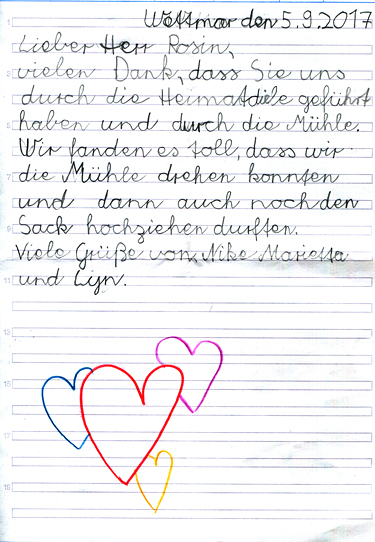 Wettmar den 5.9.2017
Lieber Herr Rosin,
vielen Dank, dass Sie uns
durch die Heimatdiele geführt
haben und durch die Mühle.
Wir fanden es toll, dass wir
die Mühle drehen konnten
und dann auch noch den
Sack hochziehen durften.
Viele Grüße von, Nike Marietta
und Lyn.